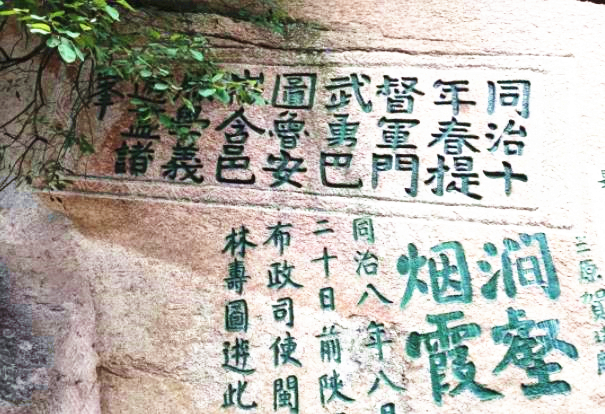 同治十
年春提
督軍門
武勇巴
圖魯安
含邑
學義
原賀
澗壑
烟霞
同治八年八月
二十日前陝
布政司使閩
林壽圖遊此